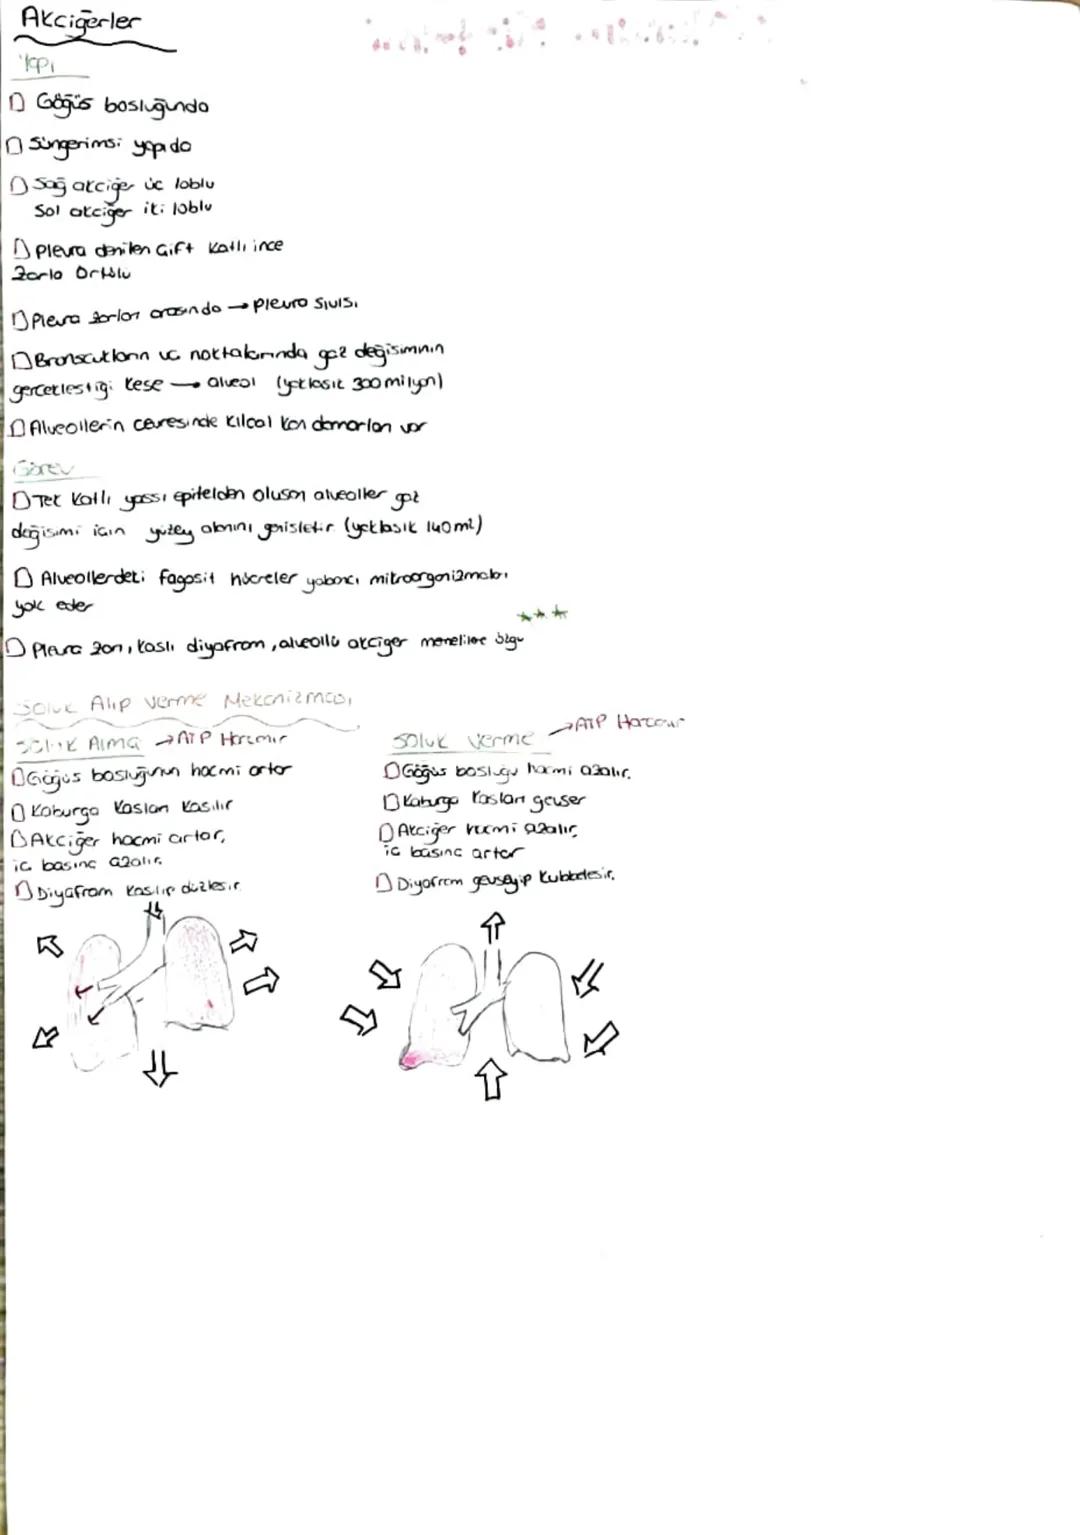 Akciğerler
Yapı
Göğüs boşluğunda
Süngerimsi yapıda
Sağ akciğer üç loblu
Sol akciğer iki loblu
Pleura denilen çift katlı ince
zarla örtülü
Pleura zarları arasında → pleura sıvısı
Bronşçukların uç noktalarında gaz değişiminin
gerçekleştiği kese → alveol (yaklaşık 300 milyon)
Alveollerin çevresinde kılcal kan damarları var
Görev
Tek katlı yassı epitelden oluşan alveoller gaz
değişimi için yüzey alanını genişletir (yaklaşık 140 m²)
Alveollerdeki fagosit hücreler yabancı mikroorganizmaları
yok eder
Pleura zarı, kaslı diyafram, alveollü akciğer memelilere özgü
Soluk Alıp Verme Mekanizması
Soluk Alma → ATP Harcanır
Göğüs boşluğunun hacmi artar
Kaburga kasları kasılır
Akciğer hacmi artar,
iç basınç azalır.
Diyafram kasılıp düzleşir.
Soluk Verme → ATP Harcanır
Göğüs boşluğu hacmi azalır.
Kaburga kasları gevşer
Akciğer hacmi azalır,
iç basınç artar
Diyafram gevşeyip kubbeleşir.